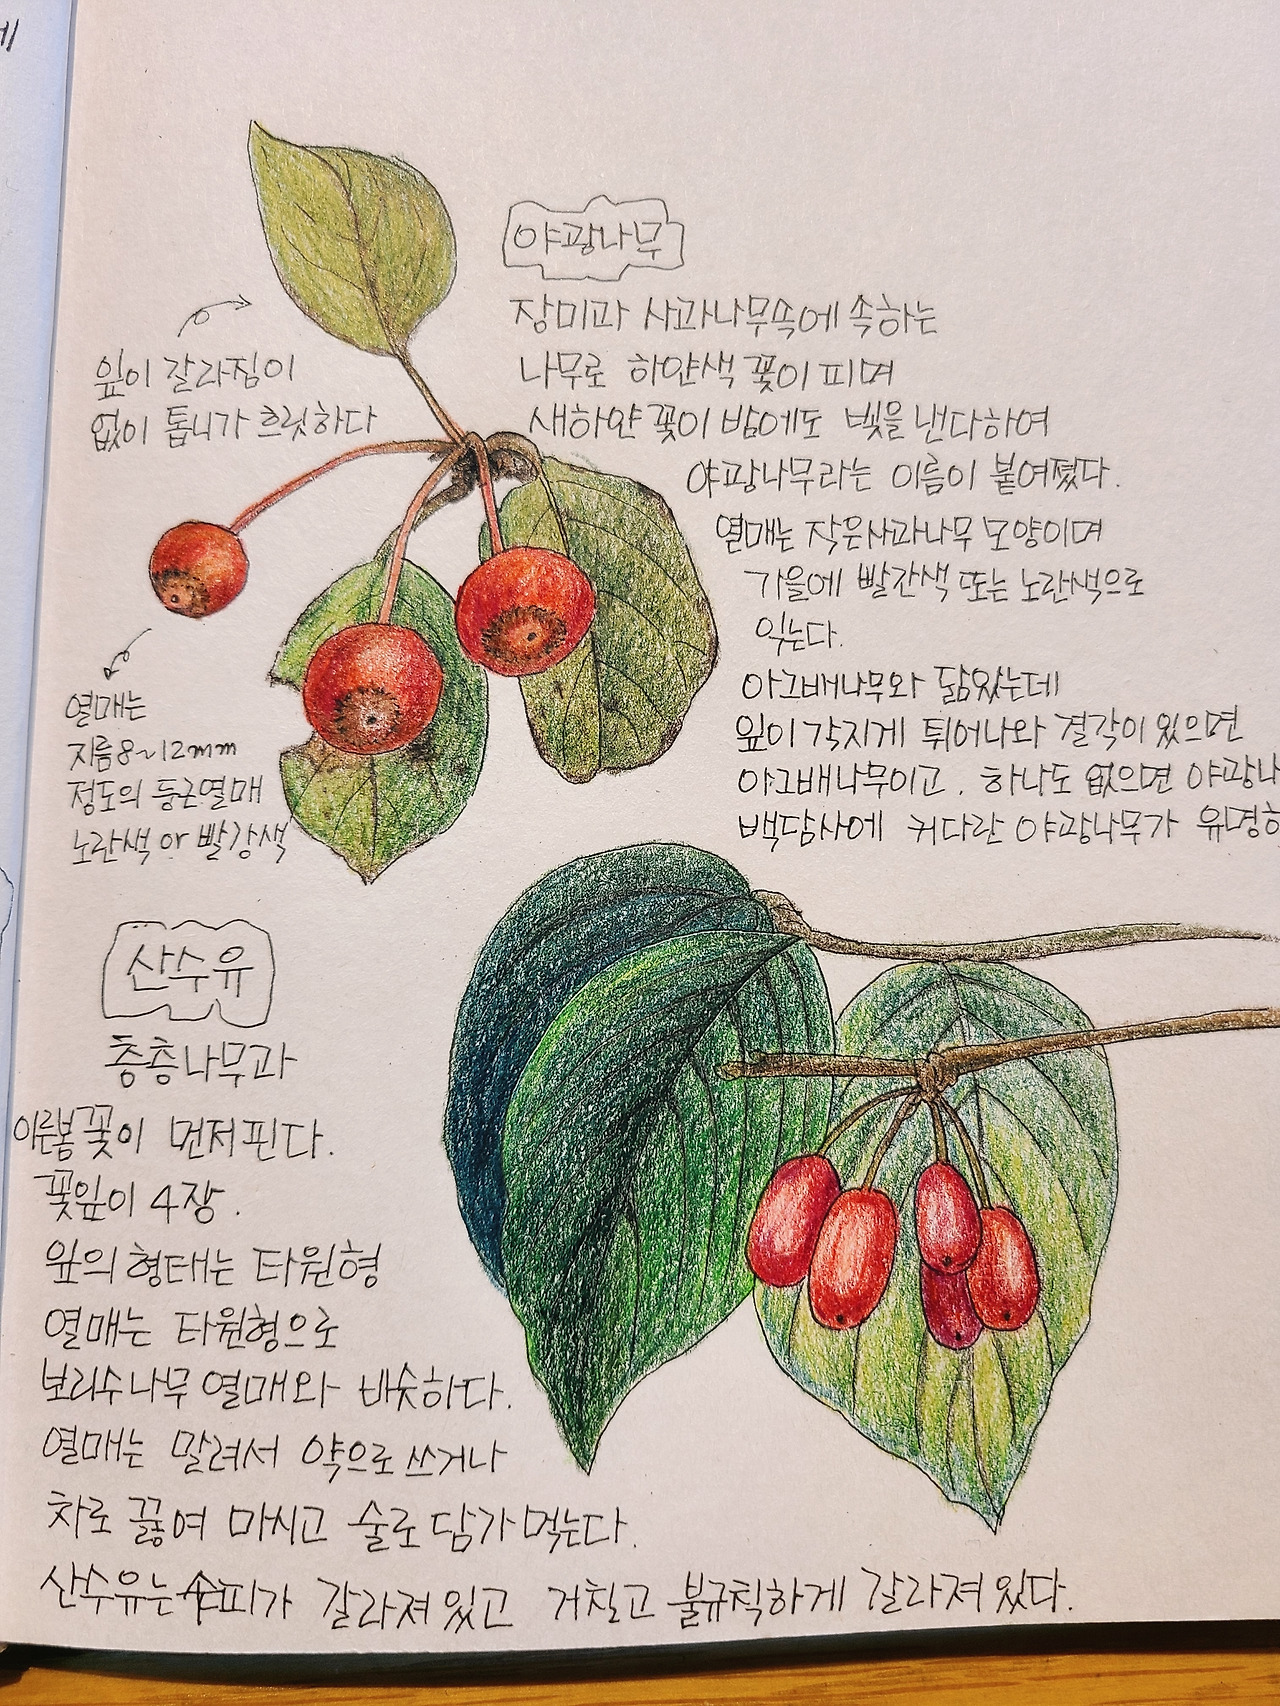 야광나무
장미과 사과나무속에 속하는
나무로 하얀색 꽃이 피며
새하얀 꽃이 밤에도 빛을 낸다하여
야광나무라는 이름이 붙여졌다.
열매는 작은사과나무 모양이며
가을에 빨간색 또는 노란색으로
익는다.
아그배나무와 닮았는데
잎이 각지게 튀어나와 결각이 있으면
아그배나무이고. 하나도 없으면 야광나
백담사에 커다란 야광나무가 유명하
잎이 갈라짐이
없이 톱니가 흐릿하다
열매는
지름 8~12mm
정도의 둥근열매
노란색 or 빨강색
산수유
층층나무과
이른봄 꽃이 먼저 핀다.
꽃잎이 4장.
잎의 형태는 타원형
열매는 타원형으로
보리수나무 열매와 비슷하다.
열매는 말려서 약으로 쓰거나
차로 끓여 마시고 술로 담가 먹는다.
산수유는 수피가 갈라져 있고 거칠고 불규칙하게 갈라져 있다.